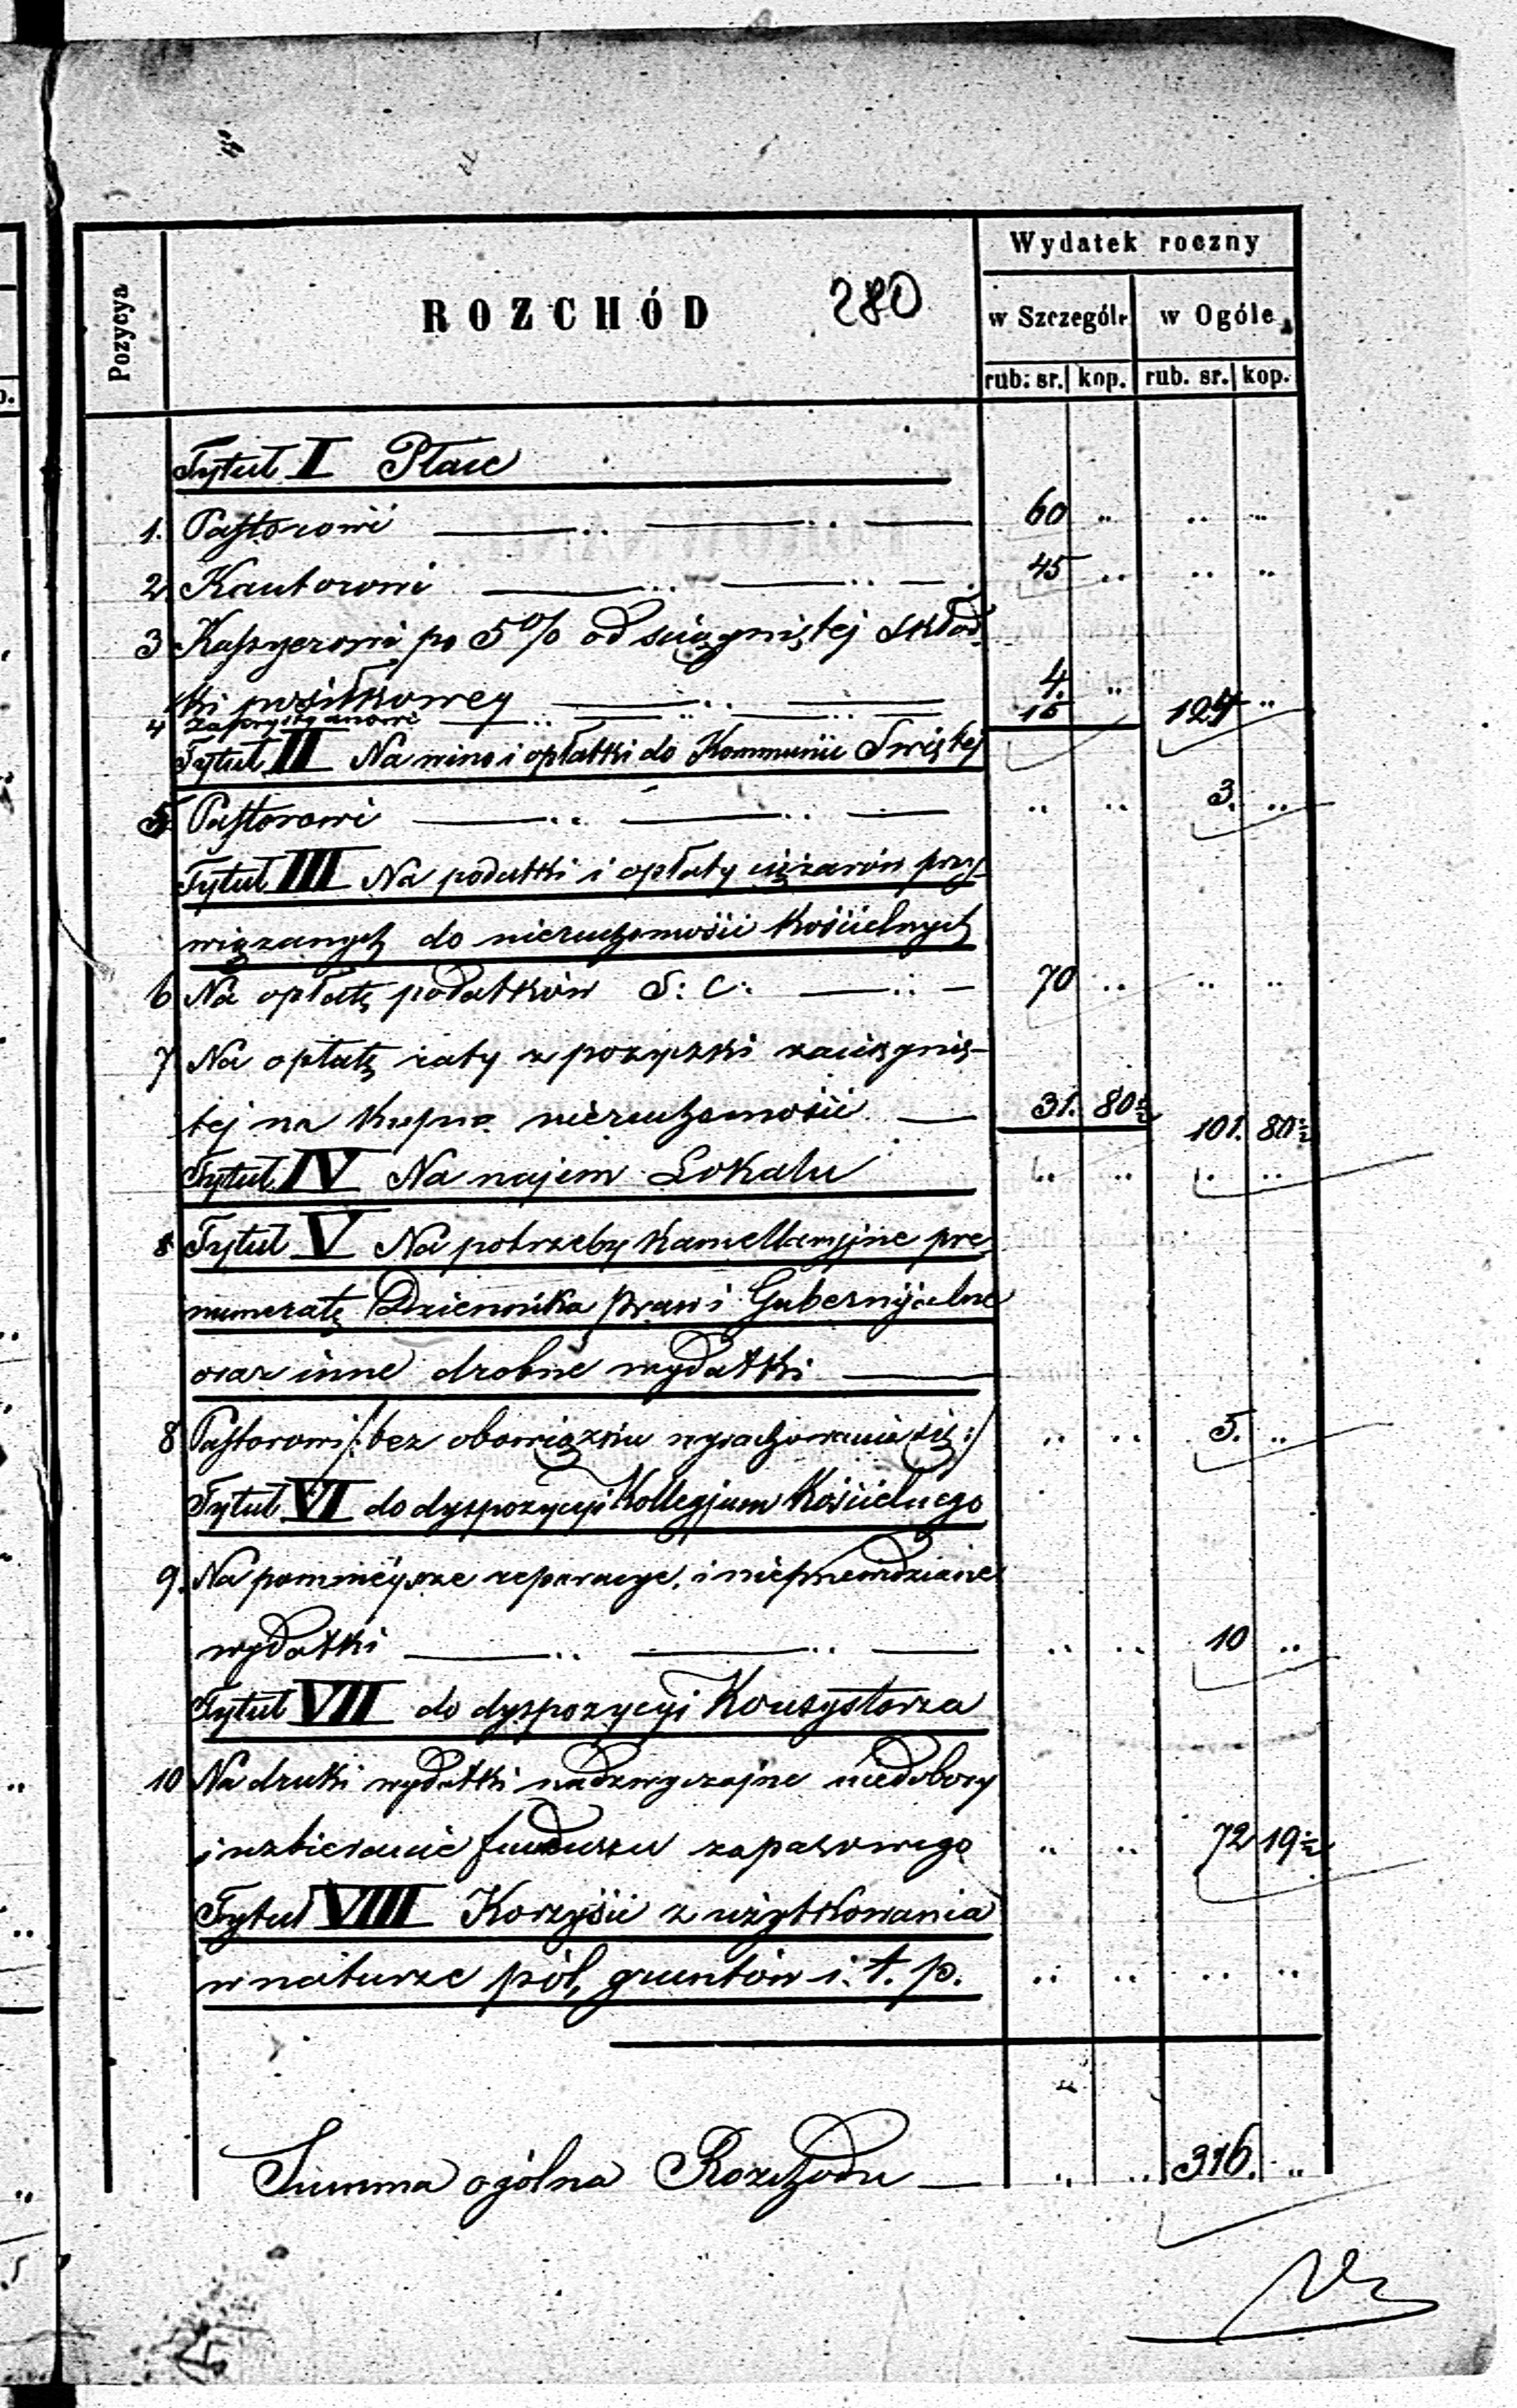 Wydatek roczny
Pozycya
ROZCHÓD 280
w Szczególe w Ogóle
rub. sr. kop. rub. sr. kop.
Tytuł I Płace
1. Pastorowi 60 „ „ „
2. Kantorowi 45 „ „ „
3 Kassyerowi po 5% od sciągniętej skład
ki posiłkowey 4. „
4 Zakrystyanowi 15 124 „
Tytuł II Na wino i opłatki do Kommunii Swiętej
5 Pastorowi „ „ 3. „
Tytuł III Na podatki i opłaty ciężarów przy-
wiązanych do nieruchomości Kościelnych
6 Na opłatę podatków S: C: 70 „ „ „
7 Na opłatę raty z pożyczki zaciągnię-
tej na Kupno nieruchomości 31. 80½ 101. 80½
Tytuł IV Na najem Lokalu „ „ „ „
Tytuł V Na potrzeby Kancellaryjne pre-
numeratę Dziennika praw i Gubernijalne
oraz inne drobne wydatki
8 Pastorowi /: bez obowiązku wyrachowania się :/ „ „ 5. „
Tytuł VI do dyspozycyi Kollegjum Kościelnego
9. Na pomniejsze reparacye, i nieprzewidziane
wydatki „ „ 10 „
Tytuł VII do dyspozycyi Konsystorza
10 Na druki wydatki nadzwyczajne niedobory
i uzbieranie funduszu zapasowego „ „ 72 19½
Tytuł VIII Korzyści z użytkowania
w naturze pól, gruntów i. t. p. „ „ „ „
Summa ogólna Rozchodu „ „ 316. „